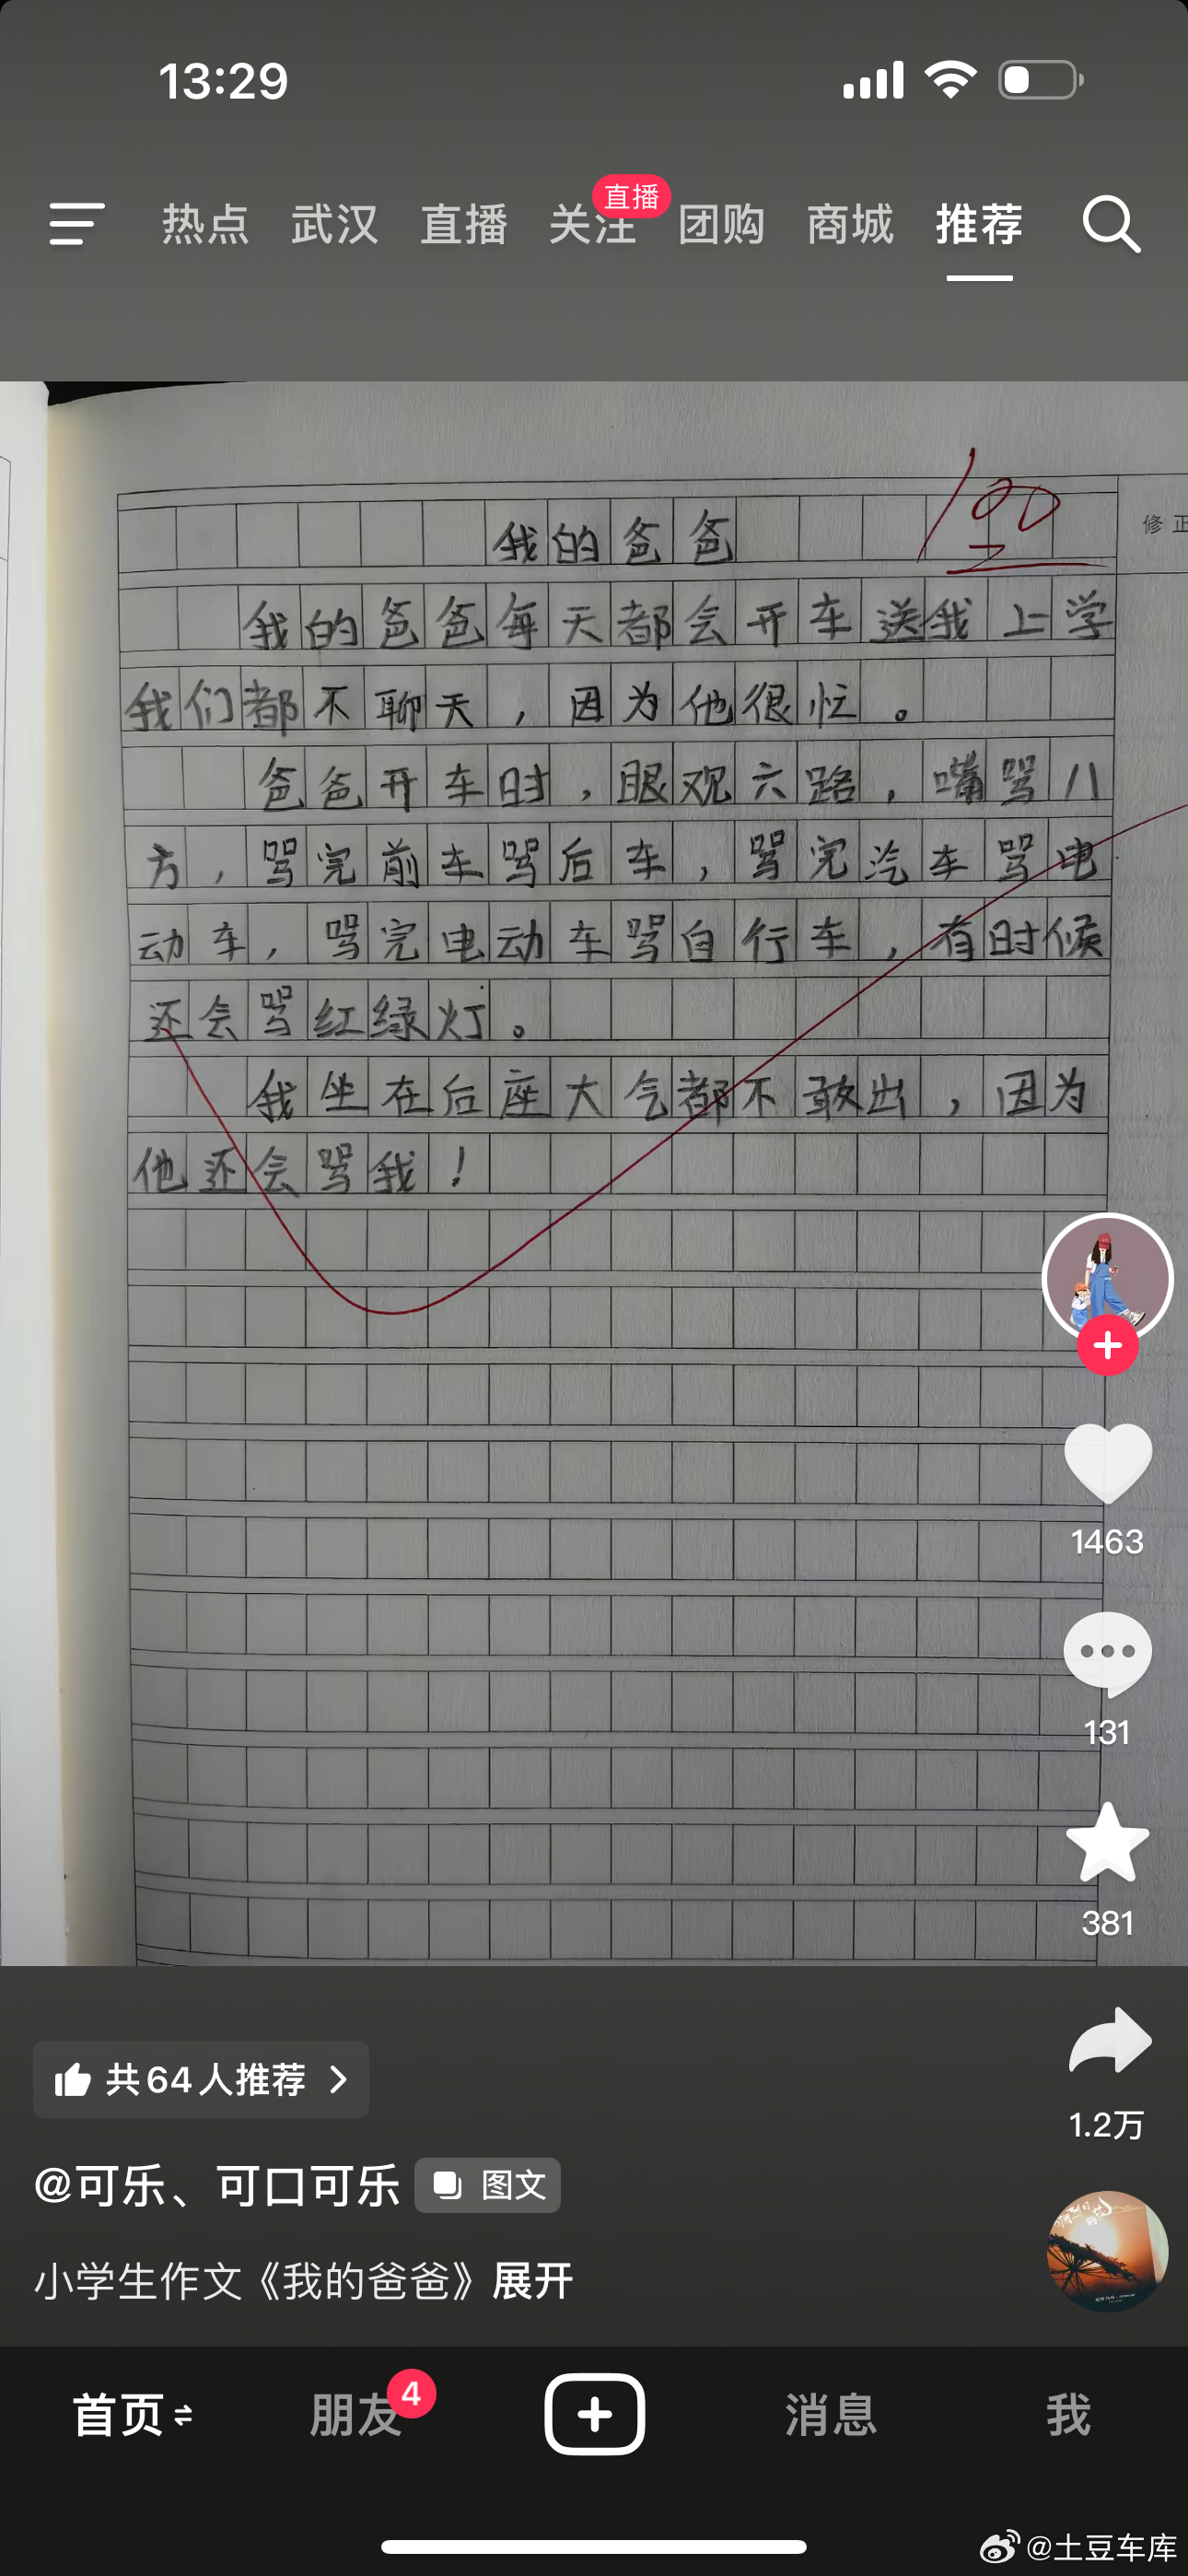 13:29
热点 武汉 直播 关注 直播 团购 商城 推荐
100
修正
我的爸爸
我的爸爸每天都会开车送我上学
我们都不聊天，因为他很忙。
爸爸开车时，眼观六路，嘴骂八
方，骂完前车骂后车，骂完汽车骂电
动车，骂完电动车骂自行车，有时候
还会骂红绿灯。
我坐在后座大气都不敢出，因为
他还会骂我！
1463
131
381
共64人推荐
1.2万
@可乐、可口可乐 图文
小学生作文《我的爸爸》展开
首页 朋友 4 消息 我
@土豆车库